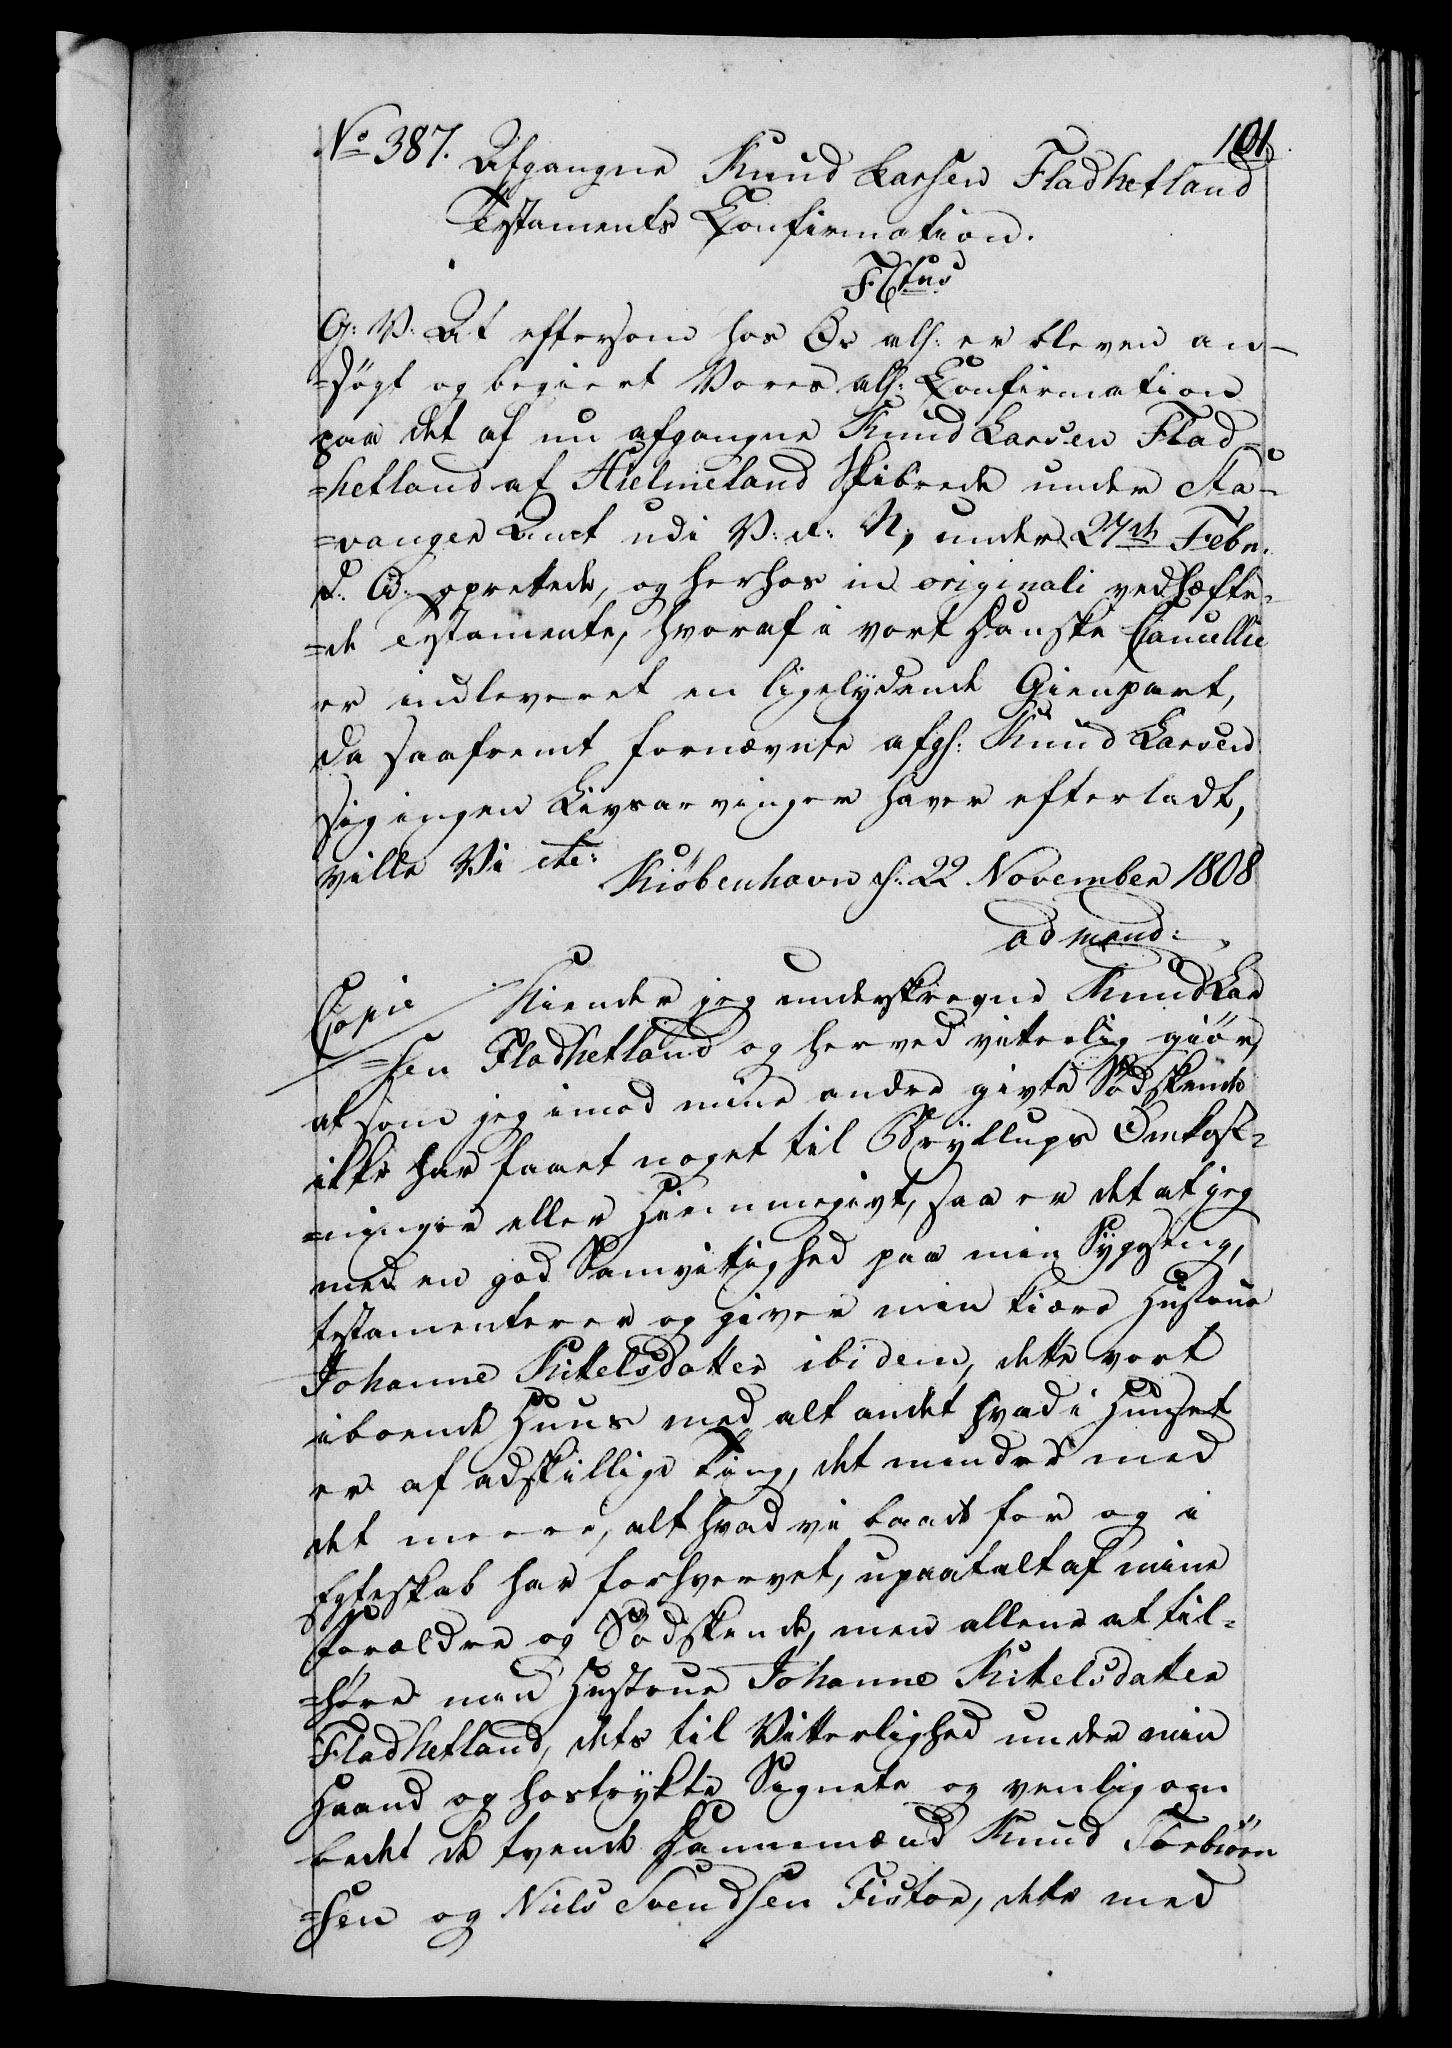 No 387. Afgangne Knud Larsen Fladhetland 101.
Testaments Confirmation.
F 6tus
G: V. At eftersom hos Os alh: er bleven an-
=søgt og begiert Vores alh: Confirmation
paa det af nu afgangne Knud Larsen Flad=
=hetland af Hielmeland Skibrede under Sta-
=vanger Amt udi V: r: N, under 27de Febr.
d. A. oprettede, og herhos in originali vedhæfte-
=de Testamente, hvoraf i vort Danske Cancellie
er indleveret en ligelydende Gienpart,
da saafremt fornævnte afg: Knud Larsen
sig ingen Livsarvinger haver efterladt,
ville Vi etc:
Kiöbenhavn d: 22 November 1808
ad mand:
Copie / Kiender jeg underskrevne Knud Lar
=sen Fladhetland og herved vitterlig giør,
at som jeg imod mine andre givte Sødskende
ikke har faaet noget til Bryllups Omkost=
=ninger eller Hiemmegivt, saa er det at jeg
med en god Samvittighed paa min Sygeseng,
testamenterer og giver min kiære Hustrue
Johanne Kitelsdatter ibidem, dette vort
iboende Huus med alt andet hvad i Huuset
er af adskillige Ting, det mindre med
det meere, alt hvad vi baade for og i
Egteskab har forhvervet, upaatalt af mine
Forældre og Sødskende, men allene at til=
=høre min Hustrue Johanne Kitelsdatter
Fladhetland, dets til Vitterlighed under min
Haand og hostrykte Signete og venlig om
bedet de tvende Dannemænd Knud Torbiörn
=sen og Niels Svendsen Fistor, dette med